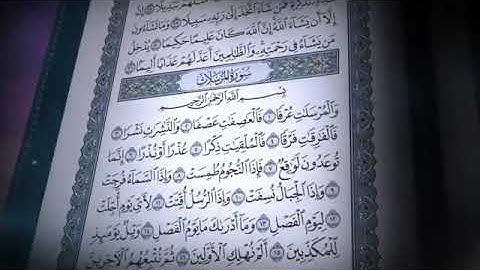 تَذْكِرَةٌ فَمَن شَاءَ اتَّخَذَ إِلَىٰ رَبِّهِ سَبِيلًا
إِلَّا أَن يَشَاءَ اللَّهُ إِنَّ اللَّهَ كَانَ عَلِيمًا حَكِيمًا ٣٠ يُدْخِلُ
مَن يَشَاءُ فِي رَحْمَتِهِ وَالظَّالِمِينَ أَعَدَّ لَهُمْ عَذَابًا أَلِيمًا
سُورَةُ الْمُرْسَلَاتِ
بِسْمِ اللَّهِ الرَّحْمَٰنِ الرَّحِيمِ
وَالْمُرْسَلَاتِ عُرْفًا ١ فَالْعَاصِفَاتِ عَصْفًا ٢ وَالنَّاشِرَاتِ نَشْرًا ٣
فَالْفَارِقَاتِ فَرْقًا ٤ فَالْمُلْقِيَاتِ ذِكْرًا ٥ عُذْرًا أَوْ نُذْرًا ٦ إِنَّمَا
تُوعَدُونَ لَوَاقِعٌ ٧ فَإِذَا النُّجُومُ طُمِسَتْ ٨ وَإِذَا السَّمَاءُ فُرِجَتْ
٩ وَإِذَا الْجِبَالُ نُسِفَتْ ١٠ وَإِذَا الرُّسُلُ أُقِّتَتْ ١١ لِأَيِّ يَوْمٍ أُجِّلَتْ
١٢ لِيَوْمِ الْفَصْلِ ١٣ وَمَا أَدْرَاكَ مَا يَوْمُ الْفَصْلِ ١٤ وَيْلٌ يَوْمَئِذٍ
لِّلْمُكَذِّبِينَ ١٥ أَلَمْ نُهْلِكِ الْأَوَّلِينَ ١٦ ثُمَّ نُتْبِعُهُمُ الْآخِرِينَ